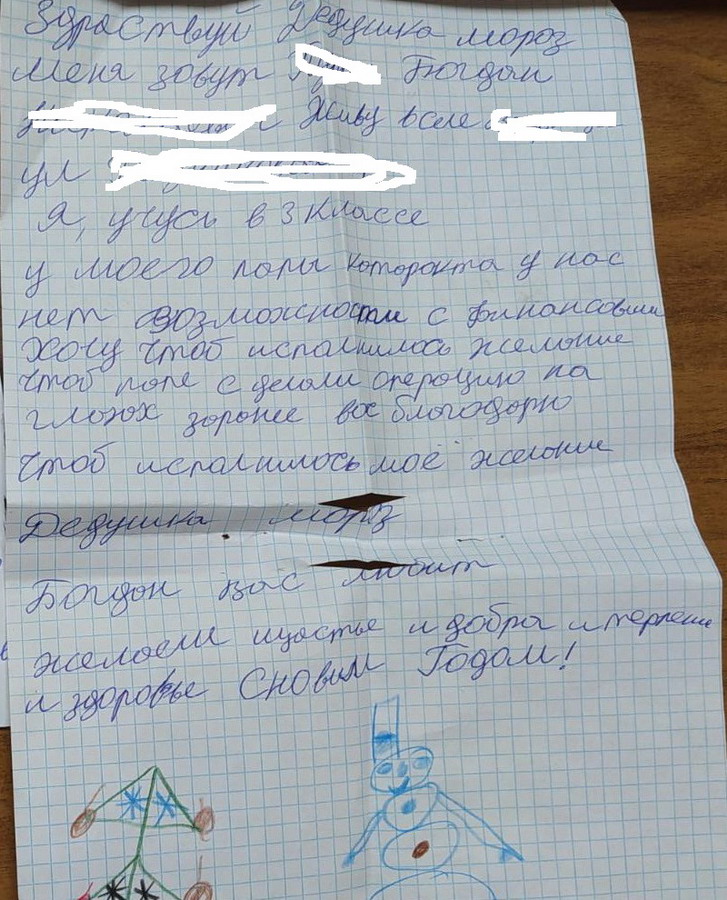 Здраствуй Дедушка мороз
Меня зовут Богдан
Живу в селе
ул
Я, учусь в 3 классе
у моего папы каторокта у нас
нет возможностти с финансовыи
хочу чтоб испалнилось желоние
чтоб попе с делоли операцию на
глозох зоронее вос блогодорю
чтоб испалнилось моё желоние
Дедушка мороз
Богдон вас любит
желоем щастье и добра и терпени
и здоровье Сновым Годом!